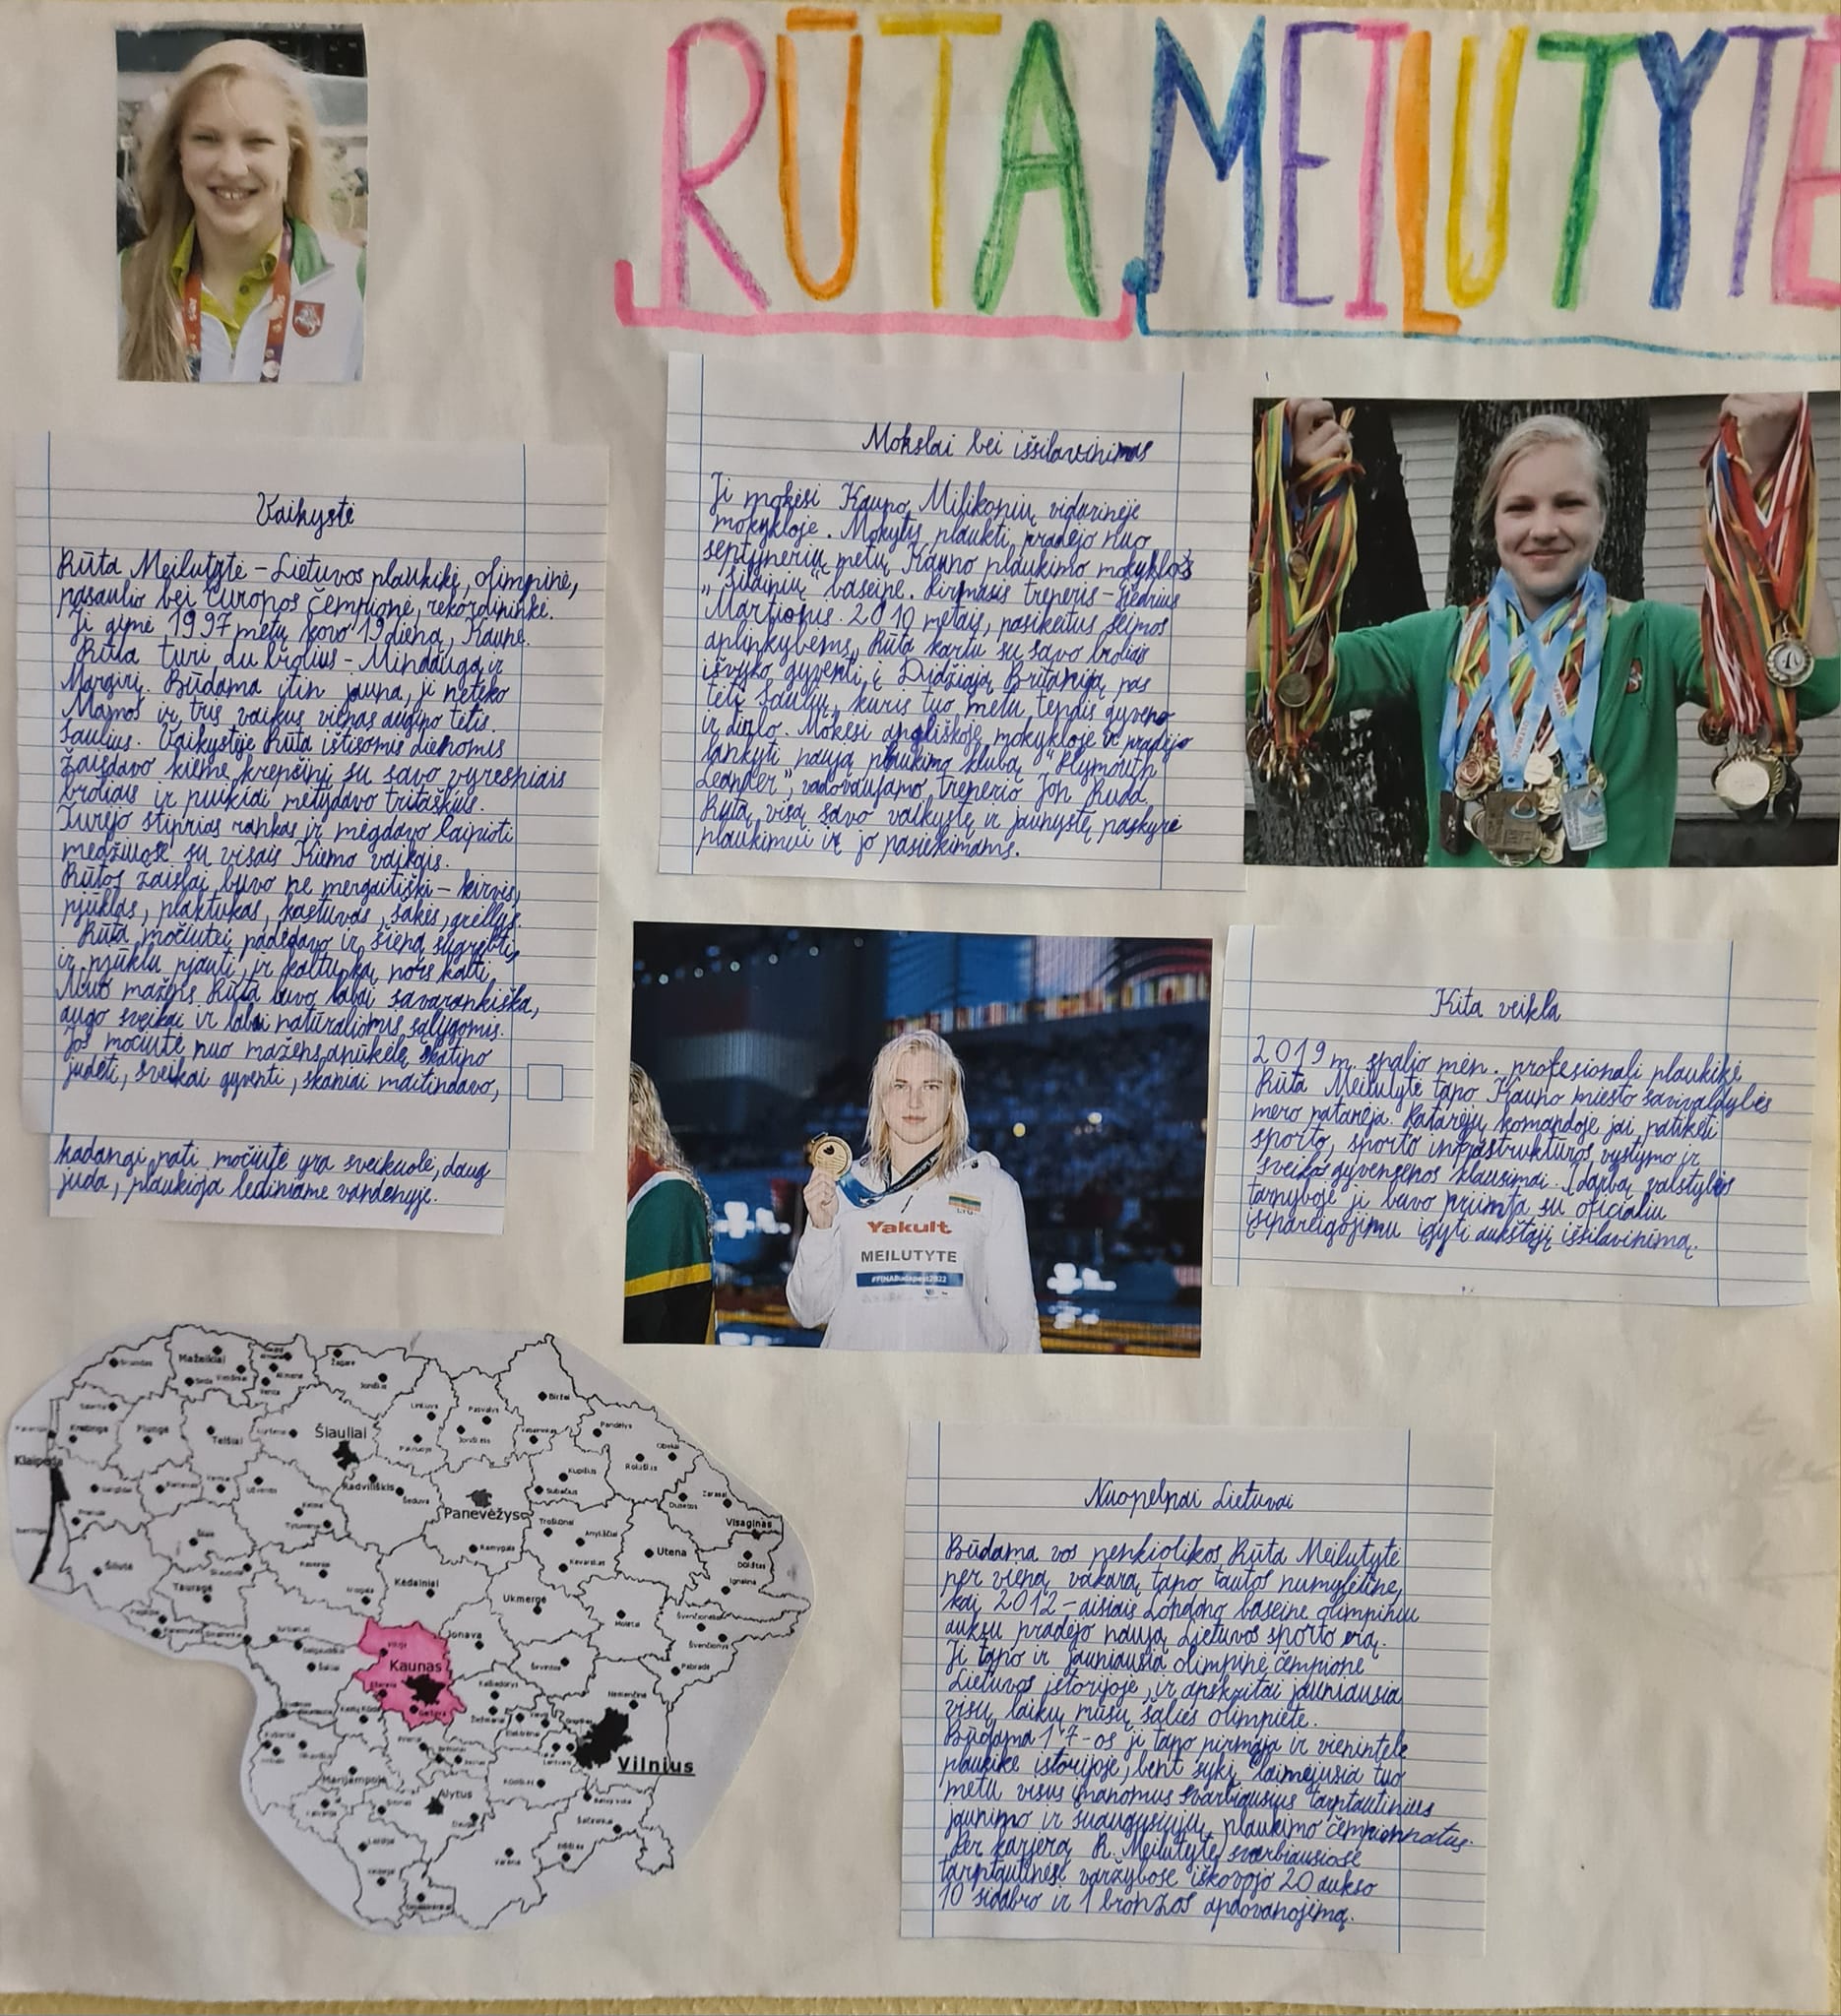 RŪTA MEILUTYTĖ
Vaikystė
Rūta Meilutytė – Lietuvos plaukikė, olimpinė,
pasaulio bei Europos čempionė, rekordininkė.
Ji gimė 1997 metų kovo 19 dieną, Kaune.
Rūta turi du brolius – Mindaugą ir
Margirį. Būdama itin jauna, ji neteko
Mamos ir tris vaikus vienas augino tėtis
Saulius. Vaikystėje Rūta ištisomis dienomis
žaisdavo kieme krepšinį su savo vyresniais
broliais ir puikiai mėtydavo tritaškius.
Turėjo stiprias rankas ir mėgdavo laipioti
medžiuose su visais kiemo vaikais.
Rūtos žaislai buvo ne mergaitiški – kirvis,
pjūklas, plaktukas, kastuvas, šakės, grėblys.
Rūta močiutei padėdavo ir šieną sugrėbti,
ir pjūklu pjauti, ir kaltuką nors kalti.
Nuo mažens Rūta buvo labai savarankiška,
augo sveikai ir labai natūraliomis sąlygomis.
Jos močiutė nuo mažens anūkėlę skatino
judėti, sveikai gyventi, skaniai maitindavo,
kadangi pati močiutė yra sveikuolė, daug
juda, plaukioja lediniame vandenyje.
Mokslai bei išsilavinimas
Ji mokėsi Kauno Milikonių vidurinėje
mokykloje. Mokytis plaukti pradėjo nuo
septynerių metų Kauno plaukimo mokyklos
„Šilainių“ baseine. Pirmasis treneris – Giedrius
Martionus. 2010 metais, pasikeitus šeimos
aplinkybėms, Rūta kartu su savo broliais
išvyko gyventi į Didžiąją Britaniją pas
tėtį Saulių, kuris tuo metu tenais gyveno
ir dirbo. Mokėsi angliškoje mokykloje ir pradėjo
lankyti naują plaukimo klubą "Plymouth
Leander", vadovaujamo trenerio Jon Rudd.
Rūta visą savo vaikystę ir jaunystę paskyrė
plaukimui ir jo pasiekimams.
Yakult
LTU
MEILUTYTE
#FINABudapest2022
Kita veikla
2019 m. spalio mėn. profesionali plaukikė
Rūta Meilutytė tapo Kauno miesto savivaldybės
mero patarėja. Patarėjų komandoje jai patikėti
sporto, sporto infrastruktūros vystymo ir
sveikos gyvensenos klausimai. Į darbą valstybės
tarnyboje ji buvo priimta su oficialiu
įsipareigojimu įgyti aukštąjį išsilavinimą.
Mažeikiai
Žagarė
Joniškis
Biržai
Pandėlys
Kretinga
Plungė
Telšiai
Šiauliai
Linkuva
Pasvalys
Obeliai
Rokiškis
Klaipėda
Radviliškis
Šeduva
Kupiškis
Subačius
Zarasai
Dusetos
Panevėžys
Troškūnai
Anykščiai
Visaginas
Šilutė
Ramygala
Utena
Dūkštas
Ignalina
Tauragė
Kėdainiai
Ukmergė
Molėtai
Švenčionys
Jonava
Pabradė
Kaunas
Širvintos
Nemenčinė
Vilnius
Marijampolė
Alytus
Varėna
Nuopelnai Lietuvai
Būdama vos penkiolikos Rūta Meilutytė
per vieną vakarą tapo tautos numylėtine,
kai 2012-aisiais Londono baseine olimpiniu
auksu pradėjo naują Lietuvos sporto erą.
Ji tapo ir jauniausia olimpinė čempione
Lietuvos istorijoje, ir apskritai jauniausia
visų laikų mūsų šalies olimpiete.
Būdama 17-os ji tapo pirmąja ir vienintele
plaukike istorijoje, bent sykį laimėjusia tuo
metu visus įmanomus svarbiausius tarptautinius
jaunimo ir suaugusiųjų plaukimo čempionatus.
Per karjerą R. Meilutytė svarbiausiose
tarptautinėse varžybose iškovojo 20 aukso
10 sidabro ir 1 bronzos apdovanojimą.